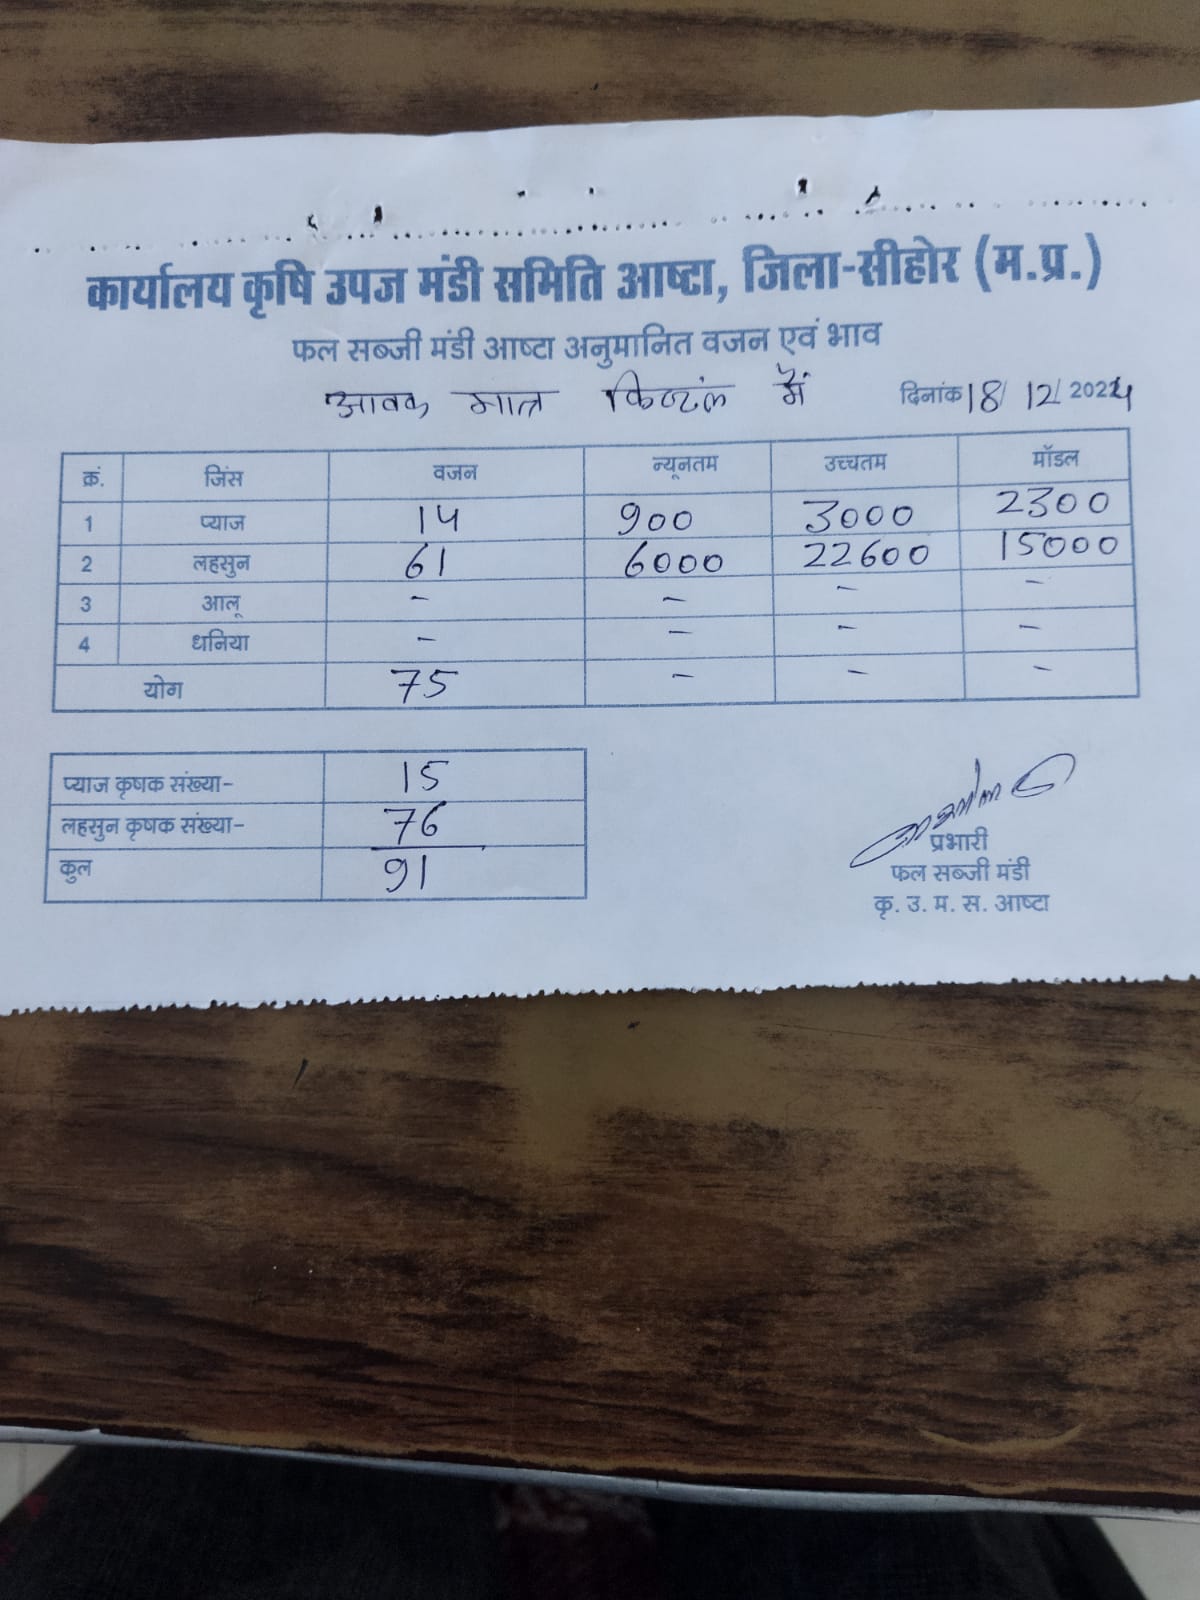 कार्यालय कृषि उपज मंडी समिति आष्टा, जिला-सीहोर (म.प्र.)
फल सब्जी मंडी आष्टा अनुमानित वजन एवं भाव
आवक मात्र क्विटंल में दिनांक 18/12/2024
क्रं. जिंस वजन न्यूनतम उच्चतम मॉडल
1 प्याज 14 900 3000 2300
2 लहसुन 61 6000 22600 15000
3 आलू - - - -
4 धनिया - - - -
योग 75 - - -
प्याज कृषक संख्या- 15
लहसुन कृषक संख्या- 76
कुल 91
प्रभारी
फल सब्जी मंडी
कृ. उ. म. स. आष्टा